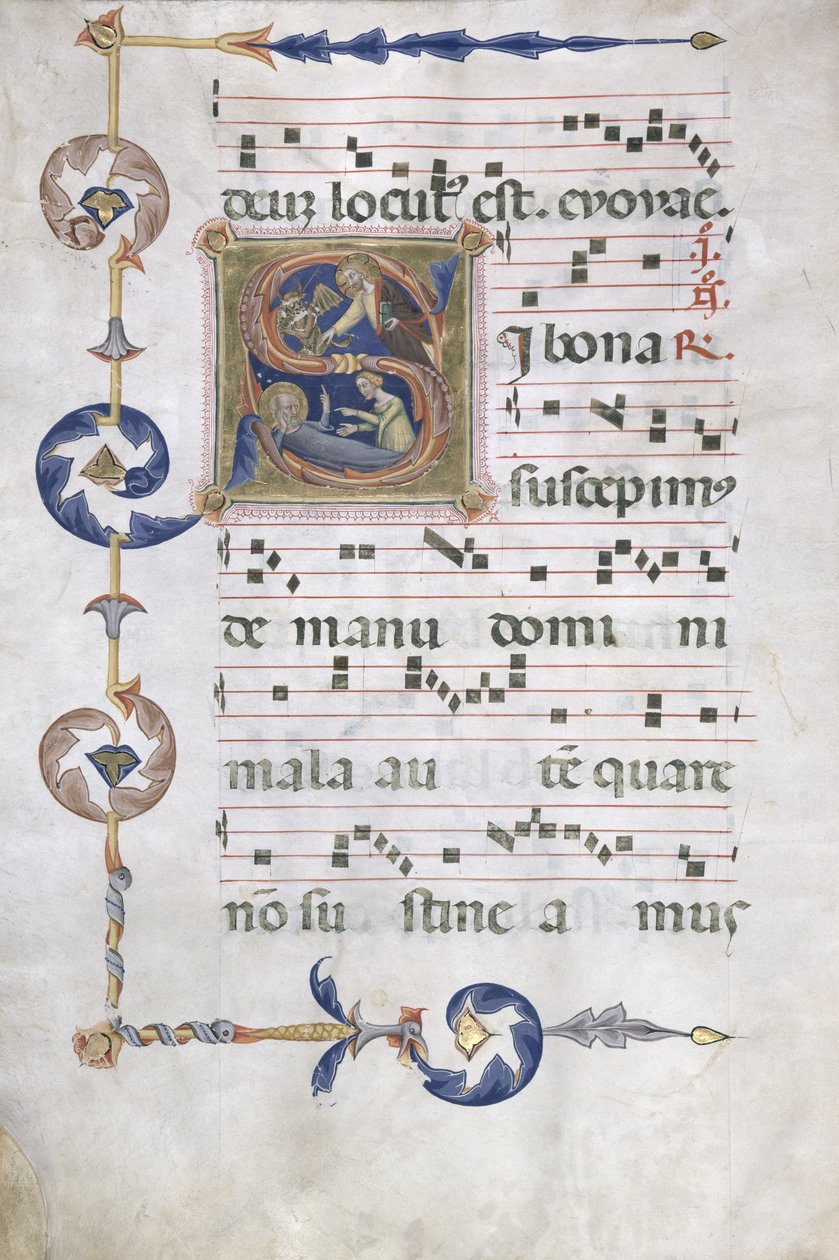 deus locutꝰ est. evovae.
j.
SJ bona R.
suscepimꝰ
de manu domi ni
mala au tē quare
nō su stine a mus